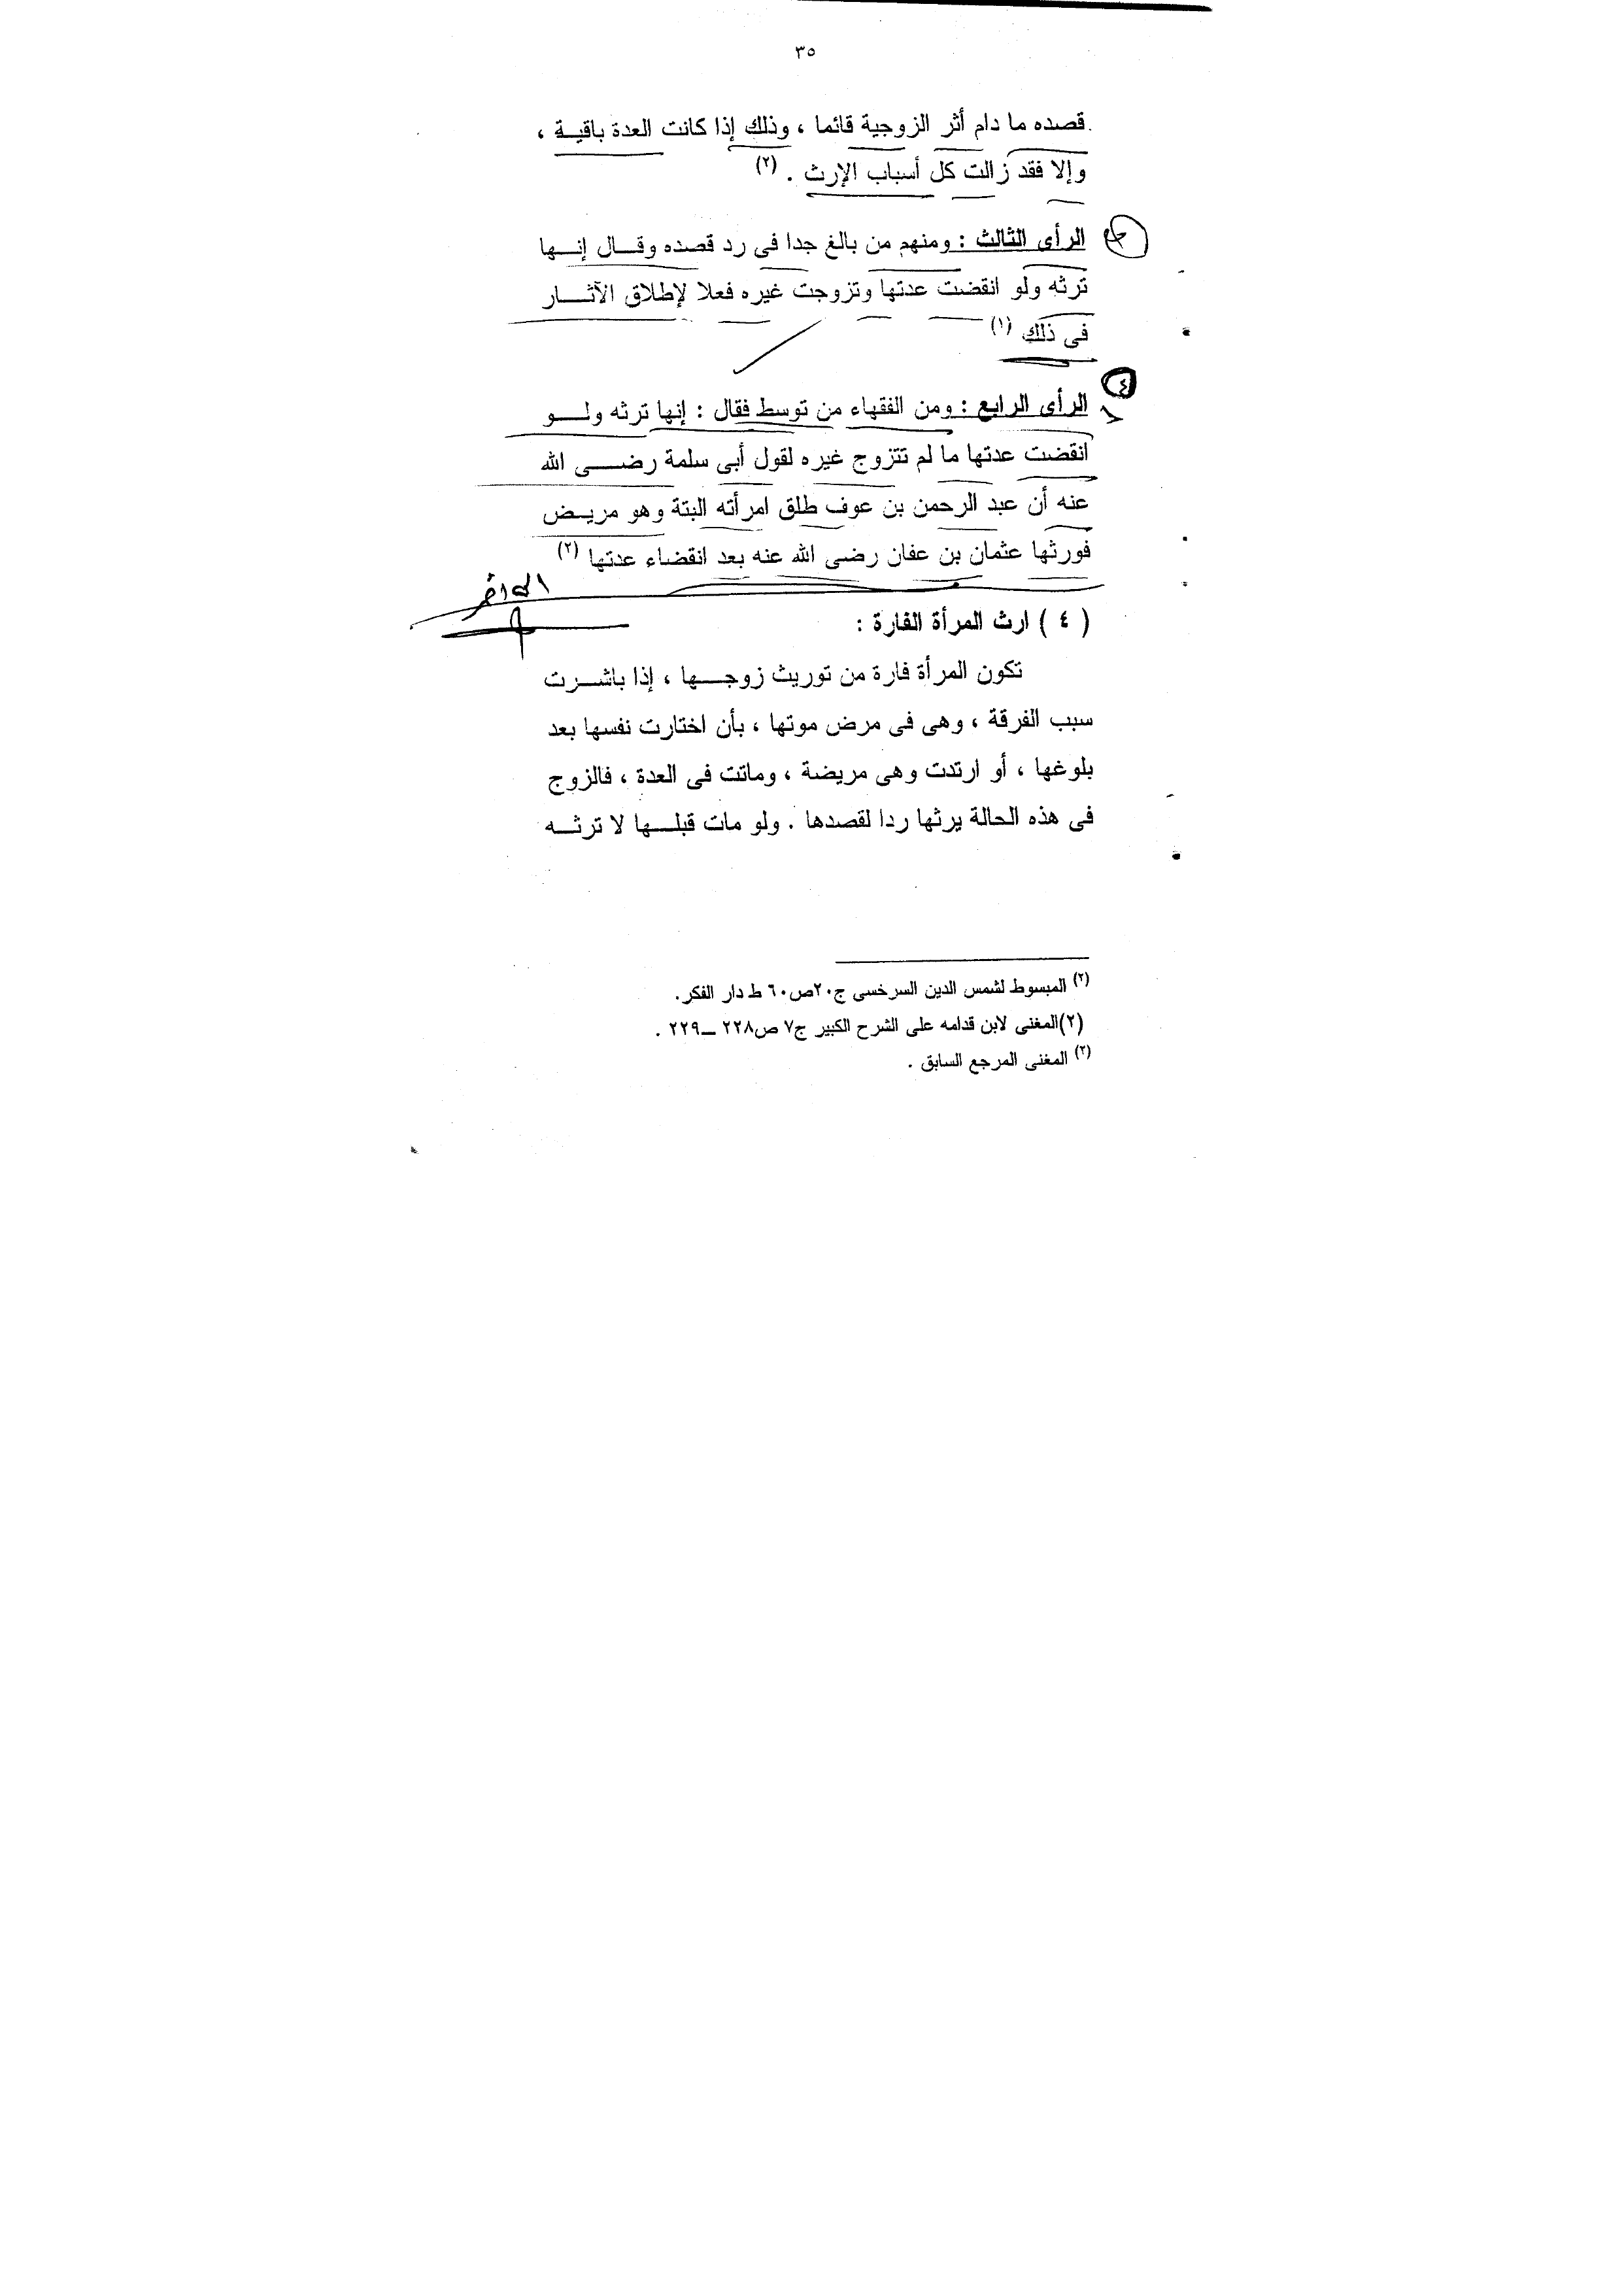 ٣٥
قصده ما دام أثر الزوجية قائما ، وذلك إذا كانت العدة باقية ،
وإلا فقد زالت كل أسباب الإرث . (٢)
الرأى الثالث : ومنهم من بالغ جدا فى رد قصده وقال إنها
ترثه ولو انقضت عدتها وتزوجت غيره فعلا لإطلاق الآثار
فى ذلك (١)
٤
الرأى الرابع : ومن الفقهاء من توسط فقال : إنها ترثه ولو
انقضت عدتها ما لم تتزوج غيره لقول أبى سلمة رضى الله
عنه أن عبد الرحمن بن عوف طلق امرأته البتة وهو مريض
فورثها عثمان بن عفان رضى الله عنه بعد انقضاء عدتها (٢)
( ٤ ) ارث المرأة الفارة :
تكون المرأة فارة من توريث زوجها ، إذا باشرت
سبب الفرقة ، وهى فى مرض موتها ، بأن اختارت نفسها بعد
بلوغها ، أو ارتدت وهى مريضة ، وماتت فى العدة ، فالزوج
فى هذه الحالة يرثها ردا لقصدها . ولو مات قبلها لا ترثه
(٢) المبسوط لشمس الدين السرخسى ج٢٠ص٦٠ ط دار الفكر.
(٢)المغنى لابن قدامه على الشرح الكبير ج٧ ص٢٢٨ ــ٢٢٩ .
(٢) المغنى المرجع السابق .